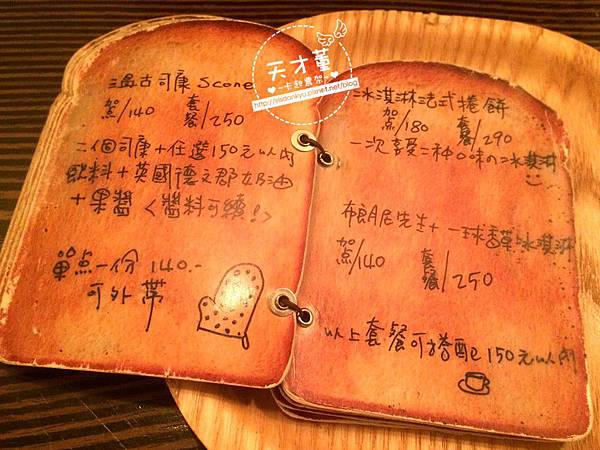 天才董
卡甜農架
溫古司康 Scone
點/140 套餐/250
二個司康+任選150元以內
飲料+英國德文郡奶油
+果醬 <醬料可續!>
單点一份 140.-
可外帶
冰淇淋法式捲餅
點/180 套餐/290
一次享受二种口味の冰淇淋
布朗尼先生+一球香草冰淇淋
點/140 套餐/250
以上套餐可搭配150元以內